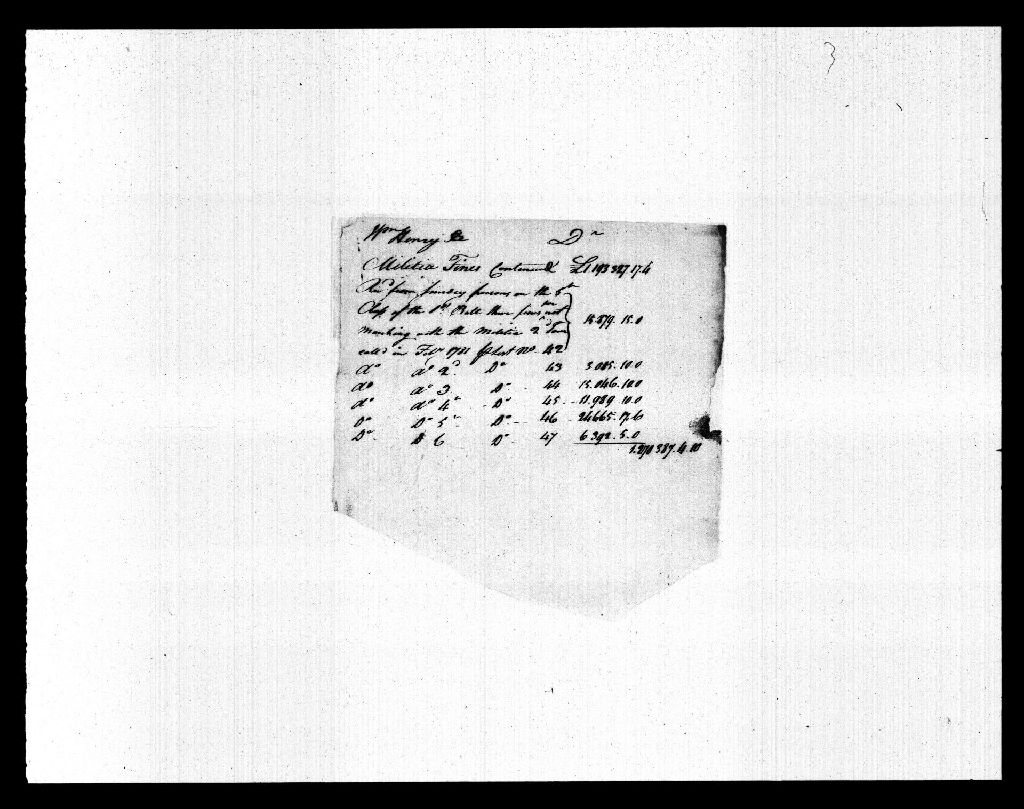 3
Wm Henry Dr
Militia Fines Continued £1193327.17.4
Recd from sundry persons on the 6th
Class of the 1st Batt their fines for not
Marching with the Militia 2d Time
called in Feby 1781 List No. 42 .15.0
do do 2d Do 43 5085.10.0
do do 3 Do 44 15.046.10.0
do do 4 Do 45 .989.10.0
Do Do 5 Do 46 24665.17.6
Do D 6 Do 47 6392.5.0